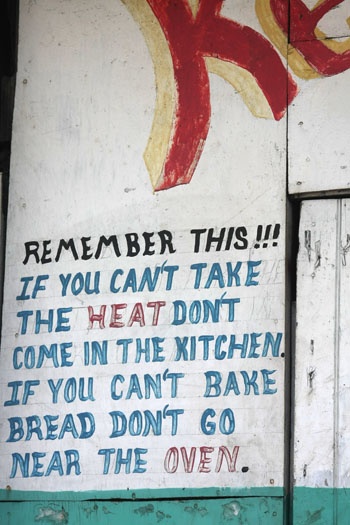 REMEMBER THIS!!!
IF YOU CAN'T TAKE
THE HEAT DON'T
COME IN THE KITCHEN.
IF YOU CAN'T BAKE
BREAD DON'T GO
NEAR THE OVEN.